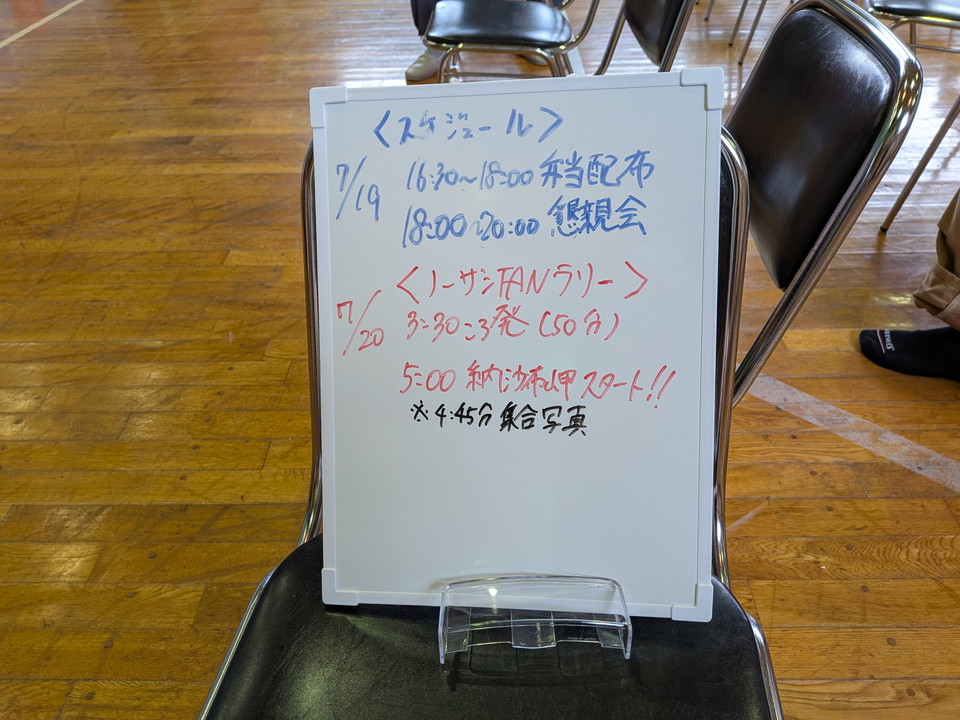 <スケジュール>
7/19 16:30~18:00 弁当配布
18:00~20:00 懇親会
<ノーサンFANラリー>
7/20 3:30ころ発 (50分)
5:00 納沙布岬スタート!!
※4:45分 集合写真